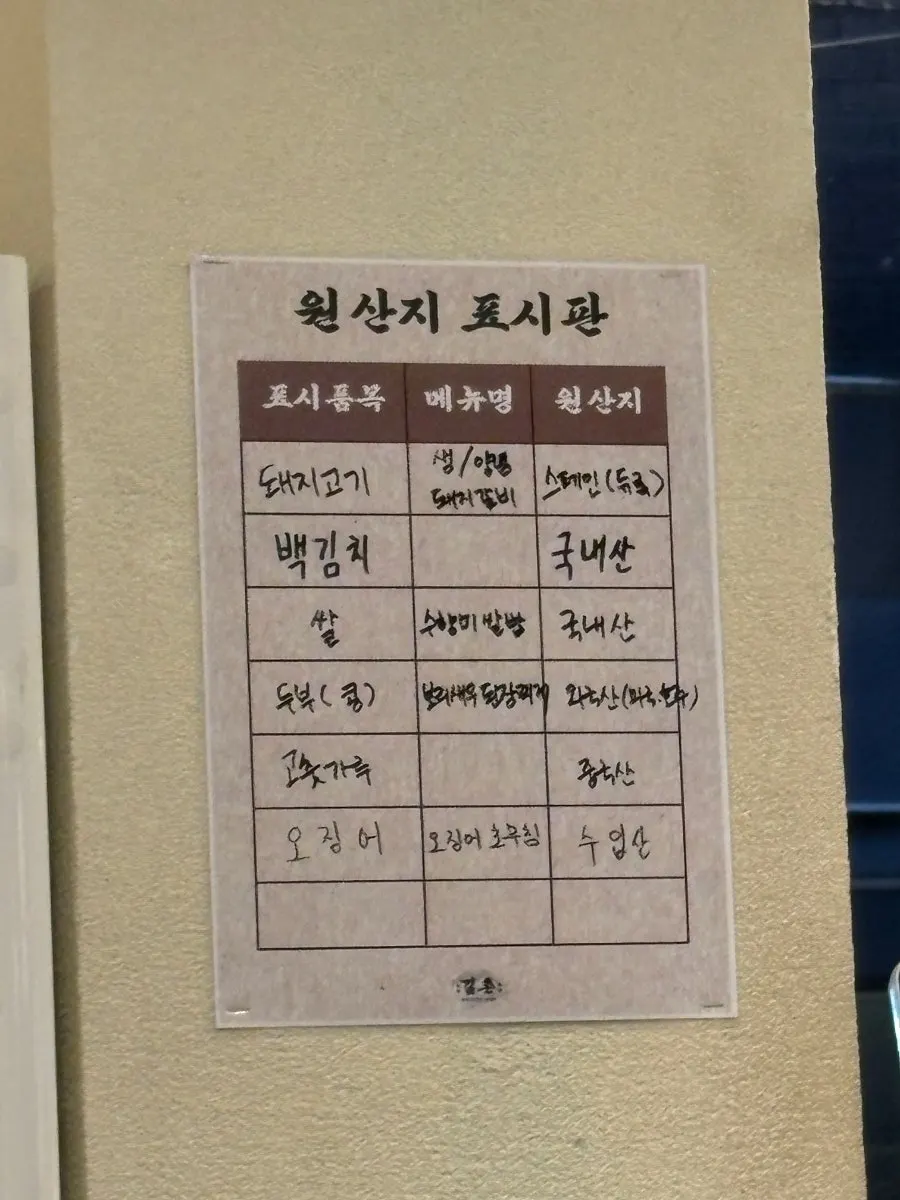 원산지 표시판
표시품목 메뉴명 원산지
돼지고기 생/양념 돼지갈비 스페인(듀록)
백김치 국내산
쌀 수향미 쌀밥 국내산
두부(콩) 보리새우 된장찌개 외국산(미국.호주)
고춧가루 중국산
오징어 오징어 초무침 수입산